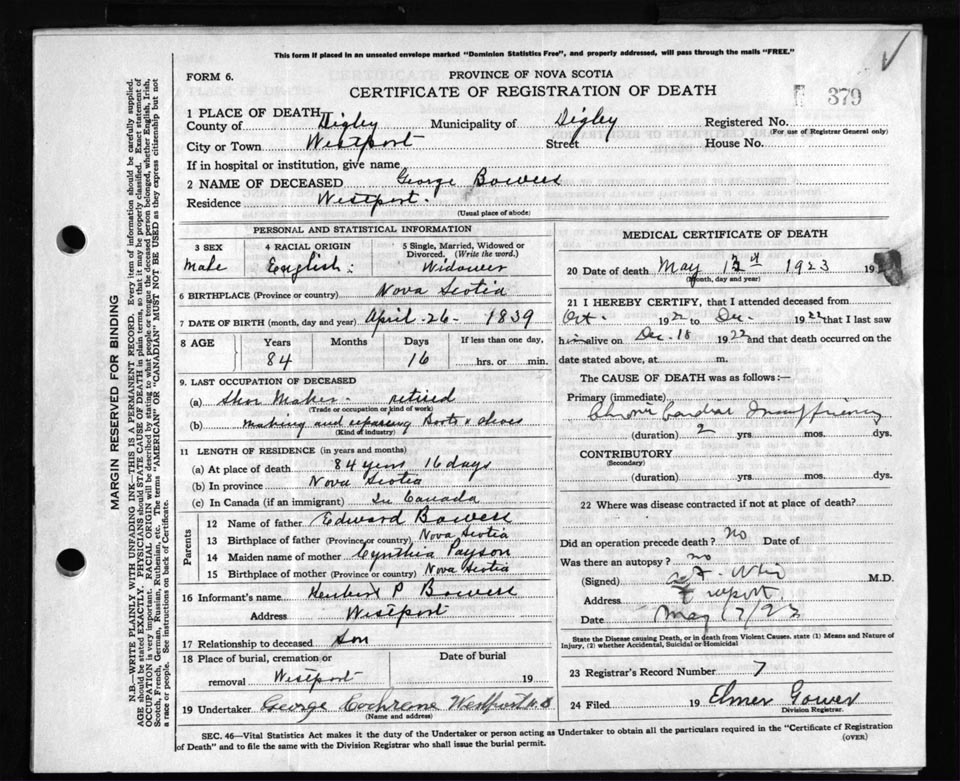 This form if placed in an unsealed envelope marked "Dominion Statistics Free", and properly addressed, will pass through the mails "FREE."
FORM 6.
PROVINCE OF NOVA SCOTIA
CERTIFICATE OF REGISTRATION OF DEATH
379
1 PLACE OF DEATH
County of Digby Municipality of Digby Registered No.
(For use of Registrar General only)
City or Town Westport Street House No.
If in hospital or institution, give name
2 NAME OF DECEASED George Bowers
Residence Westport.
(Usual place of abode)
PERSONAL AND STATISTICAL INFORMATION
3 SEX 4 RACIAL ORIGIN 5 Single, Married, Widowed or Divorced. (Write the word.)
Male English. Widower
6 BIRTHPLACE (Province or country) Nova Scotia
7 DATE OF BIRTH (month, day and year) April 26 - 1839
8 AGE Years Months Days If less than one day,
84 16 hrs. or min.
9. LAST OCCUPATION OF DECEASED
(a) Shoe Maker - retired
(Trade or occupation or kind of work)
(b) Making and repairing Boots & Shoes
(Kind of industry)
11 LENGTH OF RESIDENCE (in years and months)
(a) At place of death 84 years 16 days
(b) In province Nova Scotia
(c) In Canada (if an immigrant) In Canada
Parents
12 Name of father Edward Bowers
13 Birthplace of father (Province or country) Nova Scotia
14 Maiden name of mother Cynthia Payson
15 Birthplace of mother (Province or country) Nova Scotia
16 Informant's name Herbert P Bowers
Address Westport
17 Relationship to deceased Son
18 Place of burial, cremation or Date of burial
removal Westport 19
19 Undertaker George Cochrane Westport N.S
(Name and address)
MEDICAL CERTIFICATE OF DEATH
20 Date of death May 1923 19
(Month, day and year)
21 I HEREBY CERTIFY, that I attended deceased from
Oct. 1922 to Dec. 1922 that I last saw
him alive on Dec. 18 1922 and that death occurred on the
date stated above, at m.
The CAUSE OF DEATH was as follows:—
Primary (immediate)
Chronic Cardiac Insufficiency
(duration) 2 yrs. mos. dys.
CONTRIBUTORY
(Secondary)
(duration) yrs. mos. dys.
22 Where was disease contracted if not at place of death?
Did an operation precede death? no Date of
Was there an autopsy? no
(Signed) M.D.
Address Freeport
Date May
State the Disease causing Death, or in death from Violent Causes, state (1) Means and Nature of
Injury, (2) whether Accidental, Suicidal or Homicidal
23 Registrar's Record Number 7
24 Filed 19 Elmer Gower
Division Registrar.
SEC. 46—Vital Statistics Act makes it the duty of the Undertaker or person acting as Undertaker to obtain all the particulars required in the "Certificate of Registration
of Death" and to file the same with the Division Registrar who shall issue the burial permit.
(OVER)
MARGIN RESERVED FOR BINDING
N.B.—WRITE PLAINLY WITH UNFADING INK—THIS IS A PERMANENT RECORD. Every item of information should be carefully supplied.
AGE should be stated EXACTLY. PHYSICIANS should STATE CAUSE OF DEATH in plain terms, so that it may be properly classified. Exact statement of
OCCUPATION is very important. RACIAL ORIGIN will be described by stating to what people or tongue the deceased person belonged, whether English, Irish,
Scotch, French, German, Russian, Ruthenian, etc. The terms "AMERICAN" or "CANADIAN" MUST NOT BE USED as they express citizenship but not
a race or people. See instructions on back of Certificate.